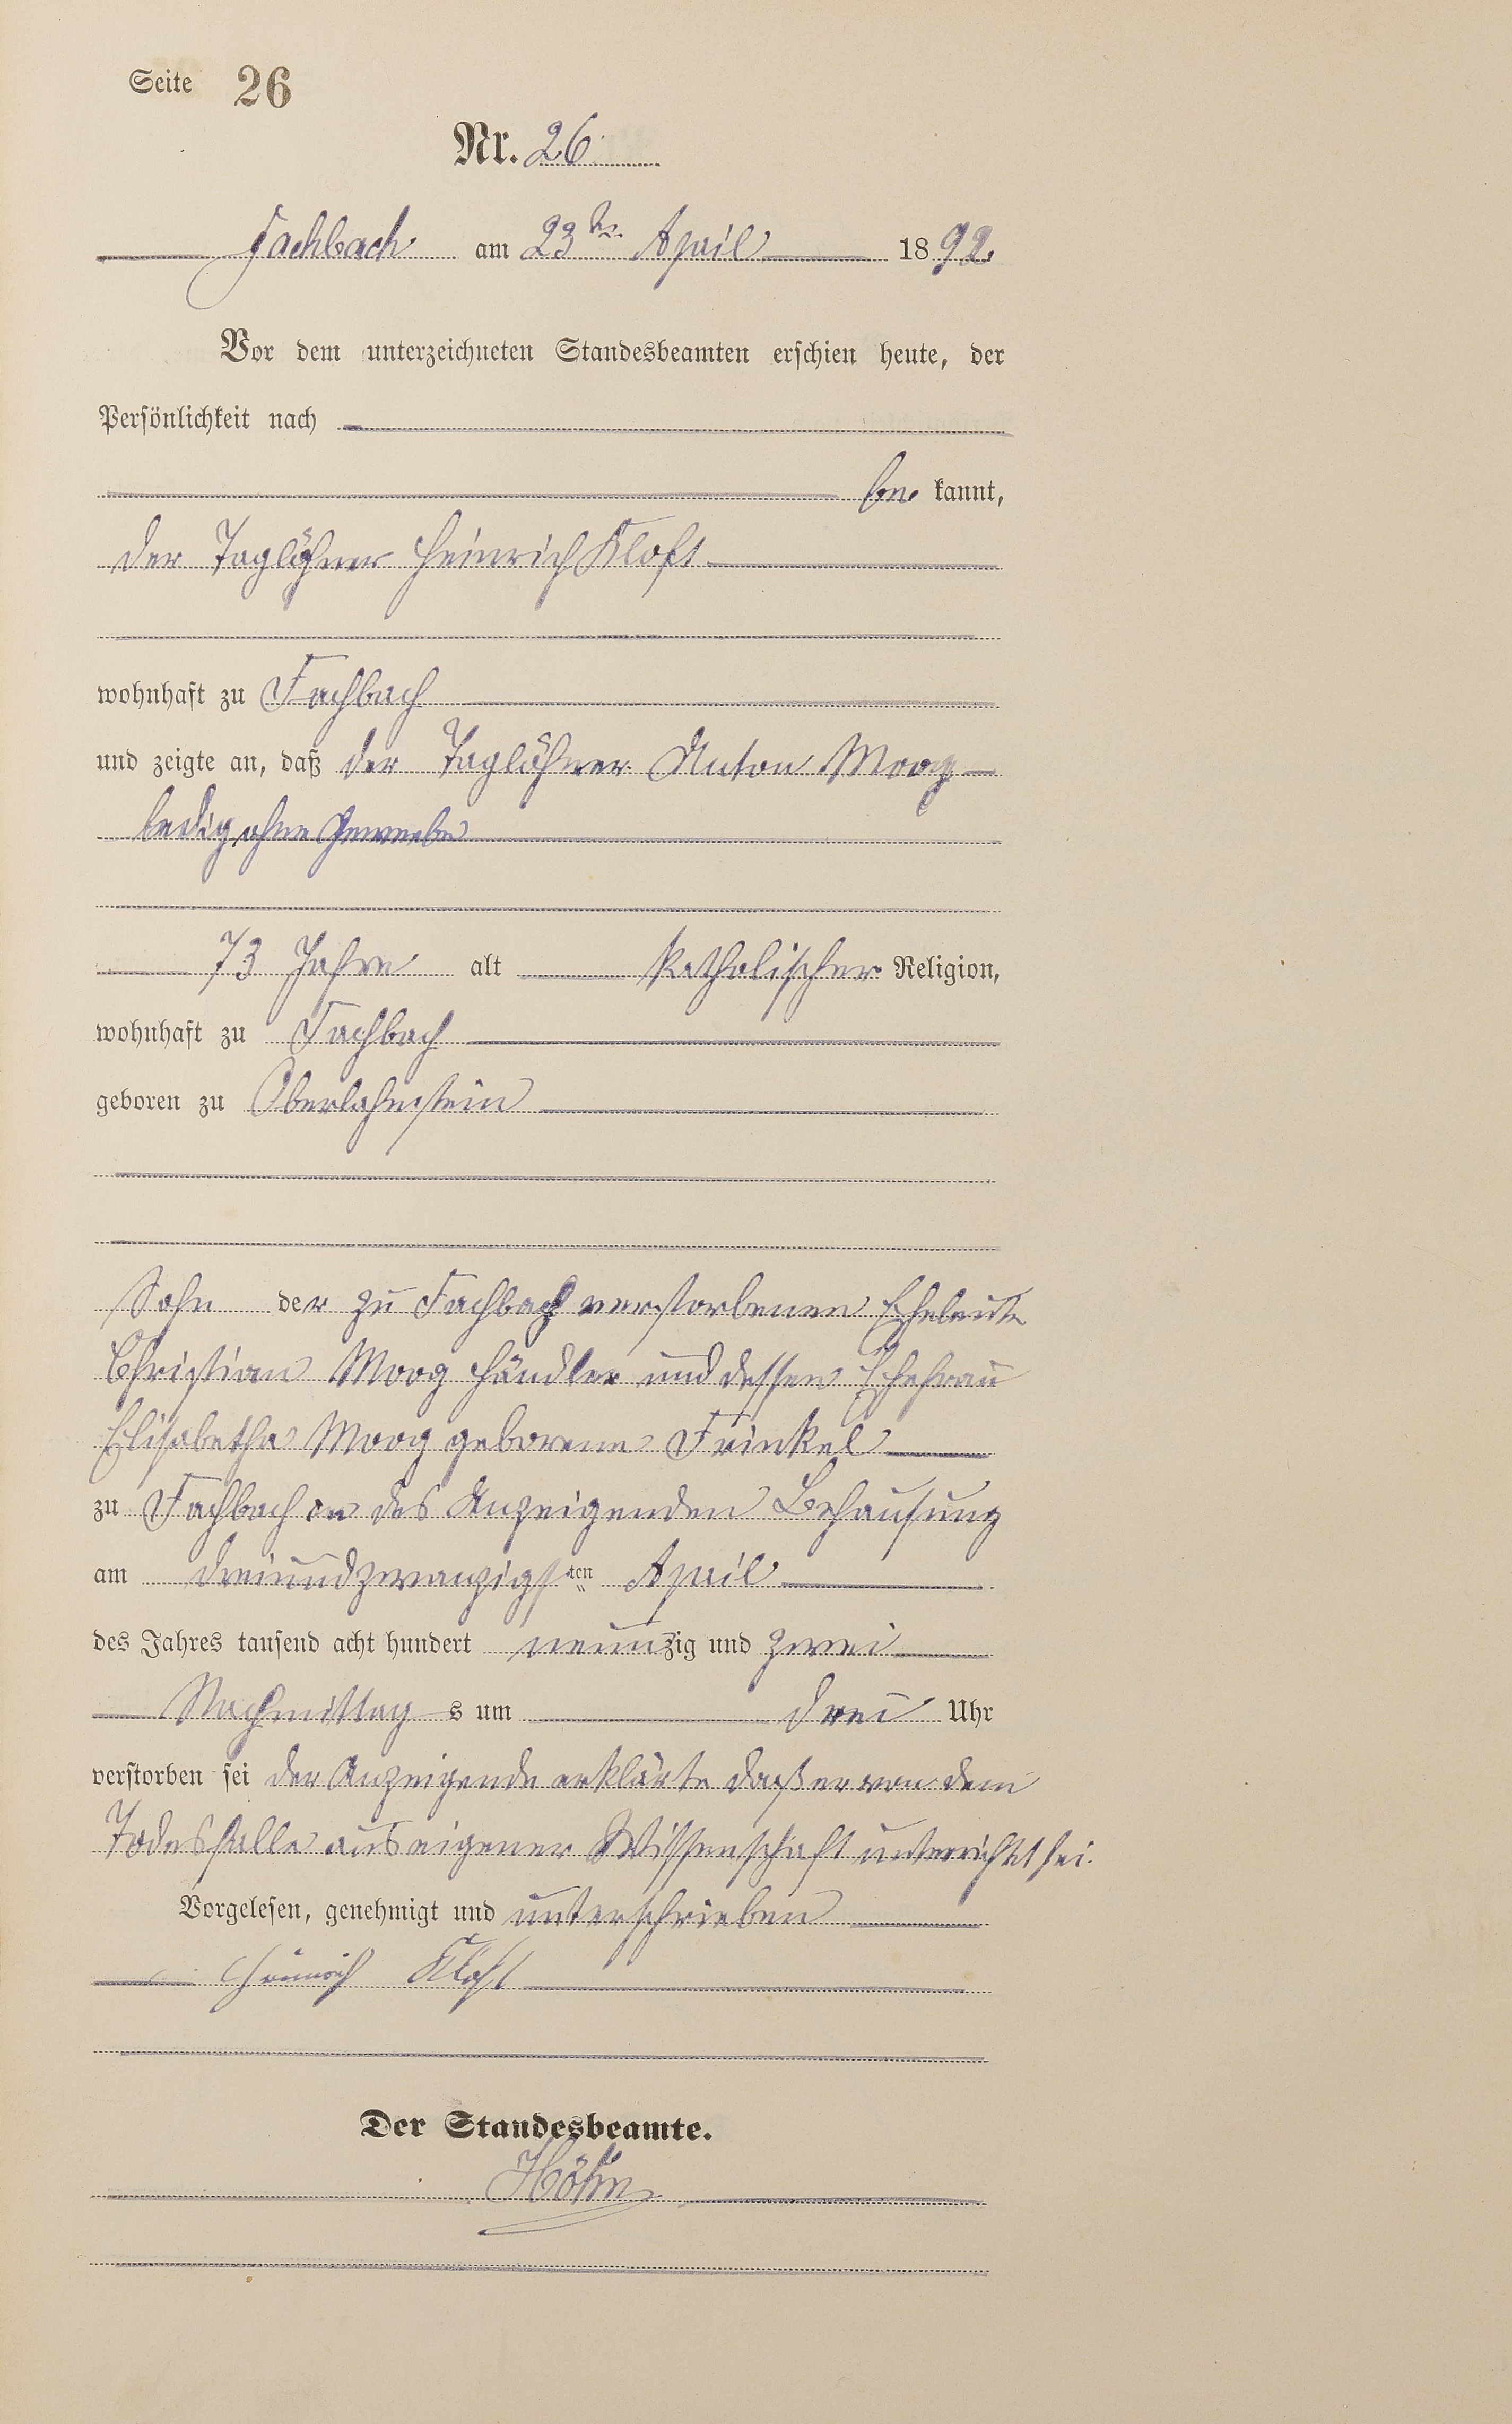 Seite 26
Nr. 26
Fachbach am 23ten April 1892.
Vor dem unterzeichneten Standesbeamten erschien heute, der
Persönlichkeit nach
be kannt,
der Taglöhner Heinrich Kloft
wohnhaft zu Fachbach
und zeigte an, daß der Taglöhner Anton Moog
ledig ohne Gewerbe
73 Jahre alt katholischer Religion,
wohnhaft zu Fachbach
geboren zu Oberlahnstein
Sohn der zu Fachbach verstorbenen Eheleute
Christian Moog Händler und dessen Ehefrau
Elisabetha Moog geborene Frinkel
zu Fachbach in des Anzeigenden Behausung
am dreiundzwanzigsten April
des Jahres tausend acht hundert neunzig und zwei
Nachmittag s um drei Uhr
verstorben sei der Anzeigende erklärte daß er von dem
Todesfalle aus eigener Wissenschaft unterrichtet sei.
Vorgelesen, genehmigt und unterschrieben
Heinrich Kloft
Der Standesbeamte.
Höhn